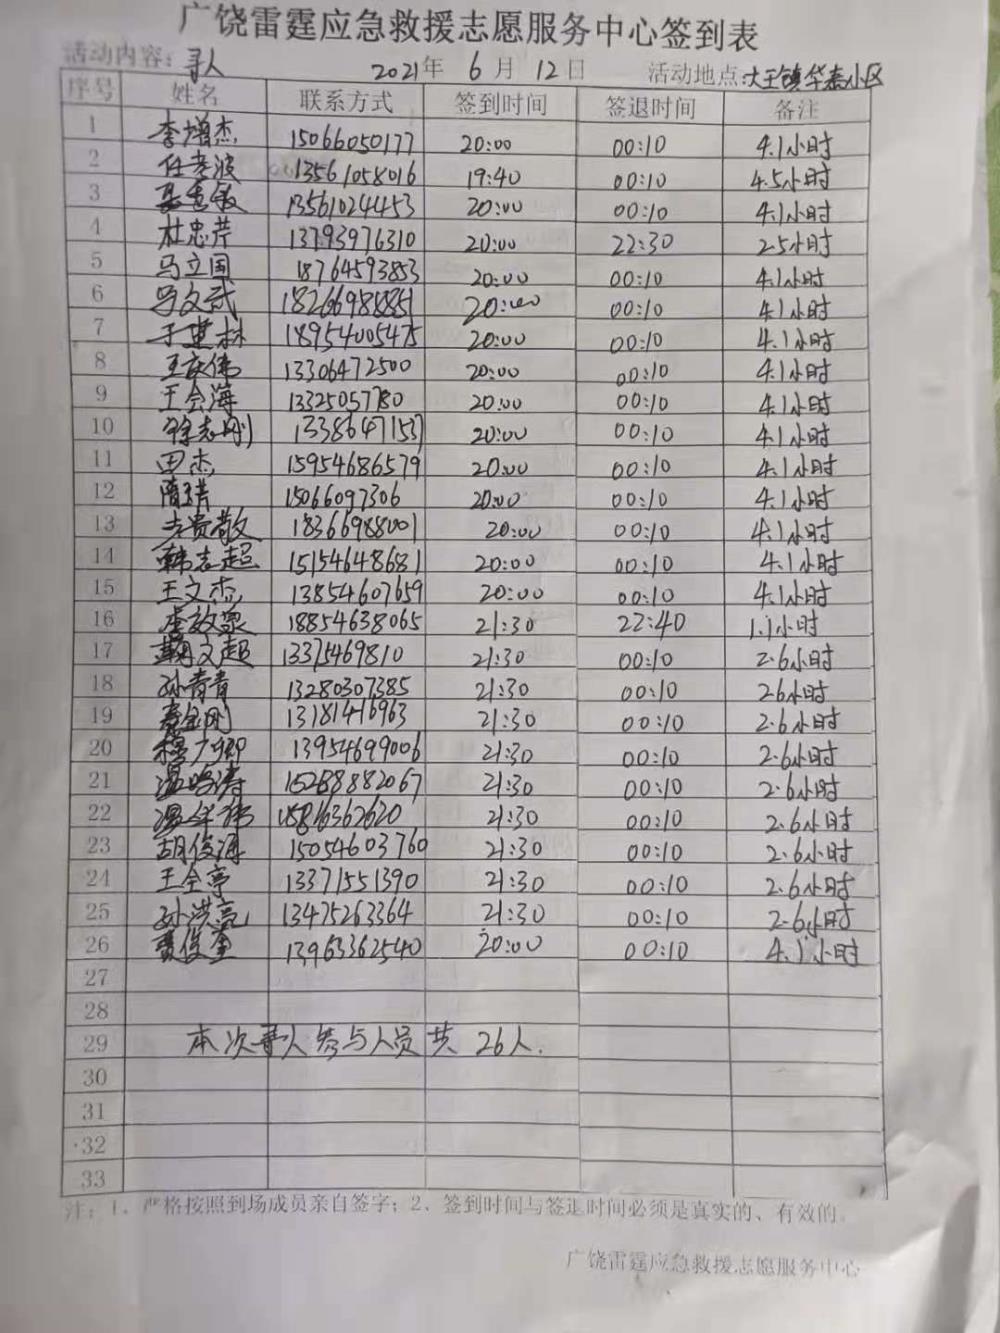 广饶雷霆应急救援志愿服务中心签到表
活动内容: 寻人 2021年 6月 12日 活动地点: 大王镇华泰小区
序号 姓名 联系方式 签到时间 签退时间 备注
1 李增杰 15066050177 20:00 00:10 4.1小时
2 任孝波 13561058016 19:40 00:10 4.5小时
3 13561024453 20:00 00:10 4.1小时
4 杜忠芹 13793976310 20:00 22:30 2.5小时
5 马立国 18764593853 20:00 00:10 4.1小时
6 马文武 18266988851 20:00 00:10 4.1小时
7 于建林 18954005475 20:00 00:10 4.1小时
8 王庆伟 13306472500 20:00 00:10 4.1小时
9 王会海 13325057780 20:00 00:10 4.1小时
10 徐志刚 13386471537 20:00 00:10 4.1小时
11 田杰 15954686579 20:00 00:10 4.1小时
12 隋青 15066097306 20:00 00:10 4.1小时
13 18366988001 20:00 00:10 4.1小时
14 韩志超 15154648681 20:00 00:10 4.1小时
15 王文杰 13854607659 20:00 00:10 4.1小时
16 18854638065 21:30 22:40 1.1小时
17 13375469810 21:30 00:10 2.6小时
18 孙青青 13280307385 21:30 00:10 2.6小时
19 秦金刚 13181416963 21:30 00:10 2.6小时
20 13954699006 21:30 00:10 2.6小时
21 温鸣涛 15288882067 21:30 00:10 2.6小时
22 15816362620 21:30 00:10 2.6小时
23 胡俊海 15054603760 21:30 00:10 2.6小时
24 王全亭 13371551390 21:30 00:10 2.6小时
25 孙洪亮 13475263364 21:30 00:10 2.6小时
26 贾俊奎 13963362540 20:00 00:10 4.1小时
27
28
29 本次寻人参与人员共26人.
30
31
32
33
注: 1、严格按照到场成员亲自签字; 2、签到时间与签退时间必须是真实的、有效的。
广饶雷霆应急救援志愿服务中心